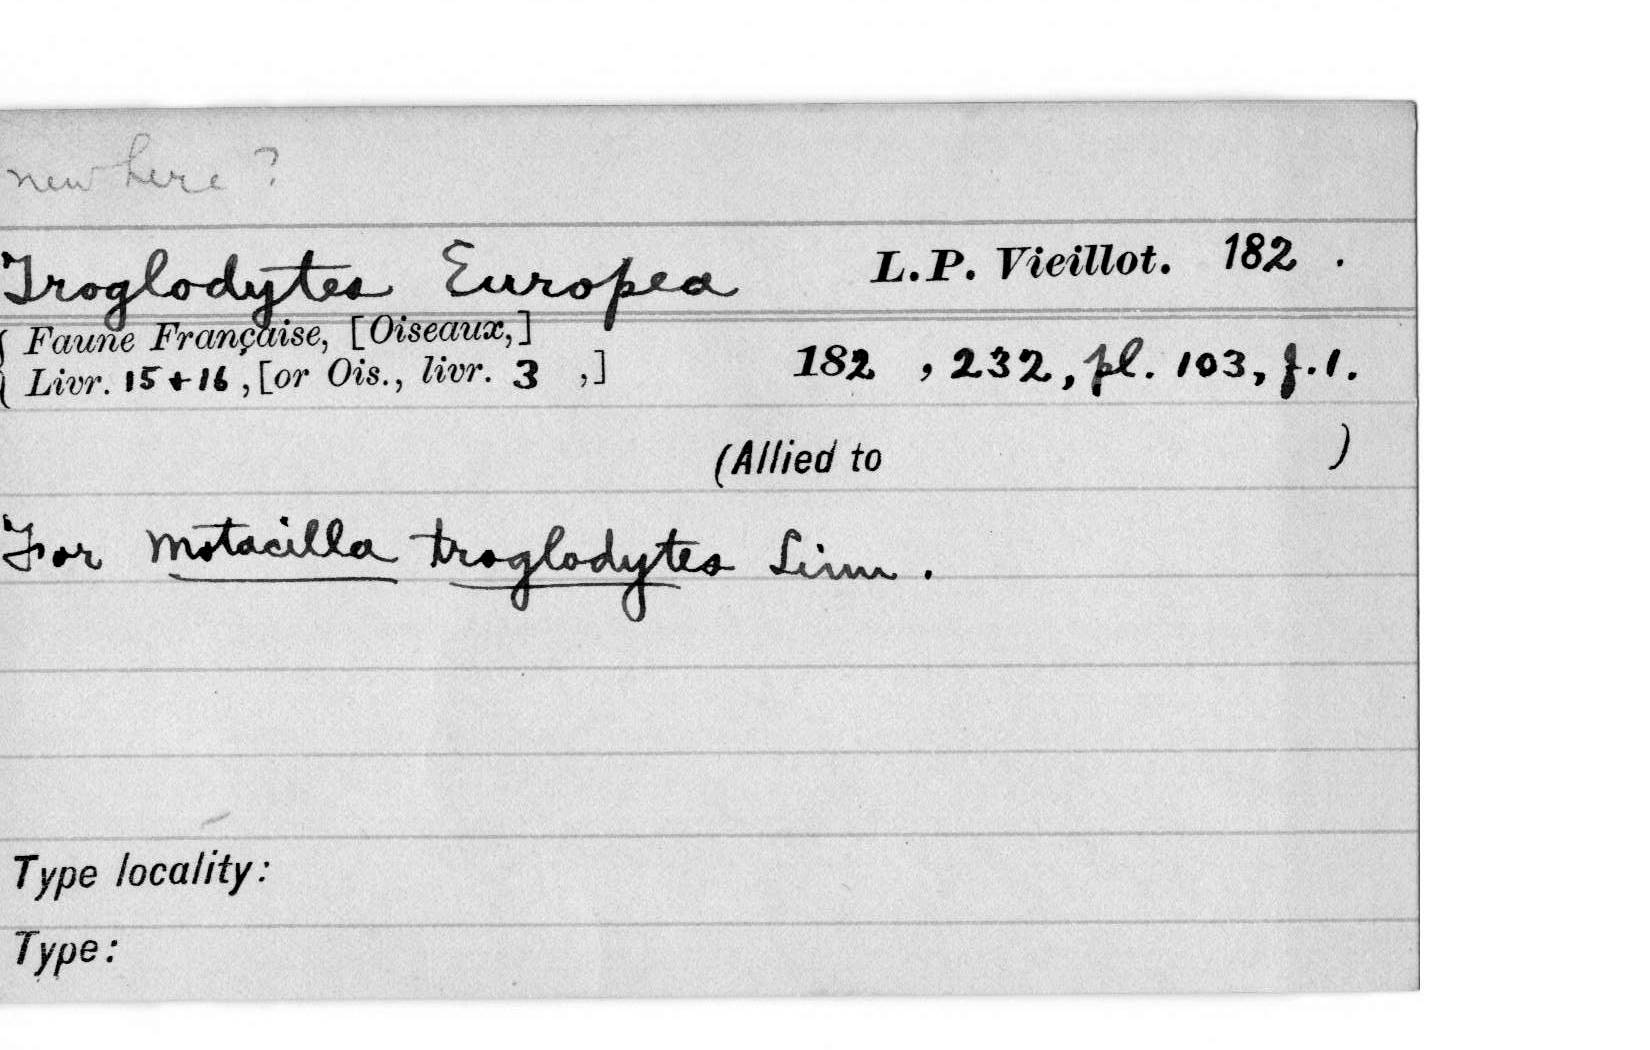 new here ?
Troglodytes Europea L.P. Vieillot. 182 .
Faune Française, [Oiseaux,]
Livr. 15 + 16, [or Ois., livr. 3 ,] 182 , 232, pl. 103, f. 1.
(Allied to )
For Motacilla troglodytes Linn.
Type locality:
Type: